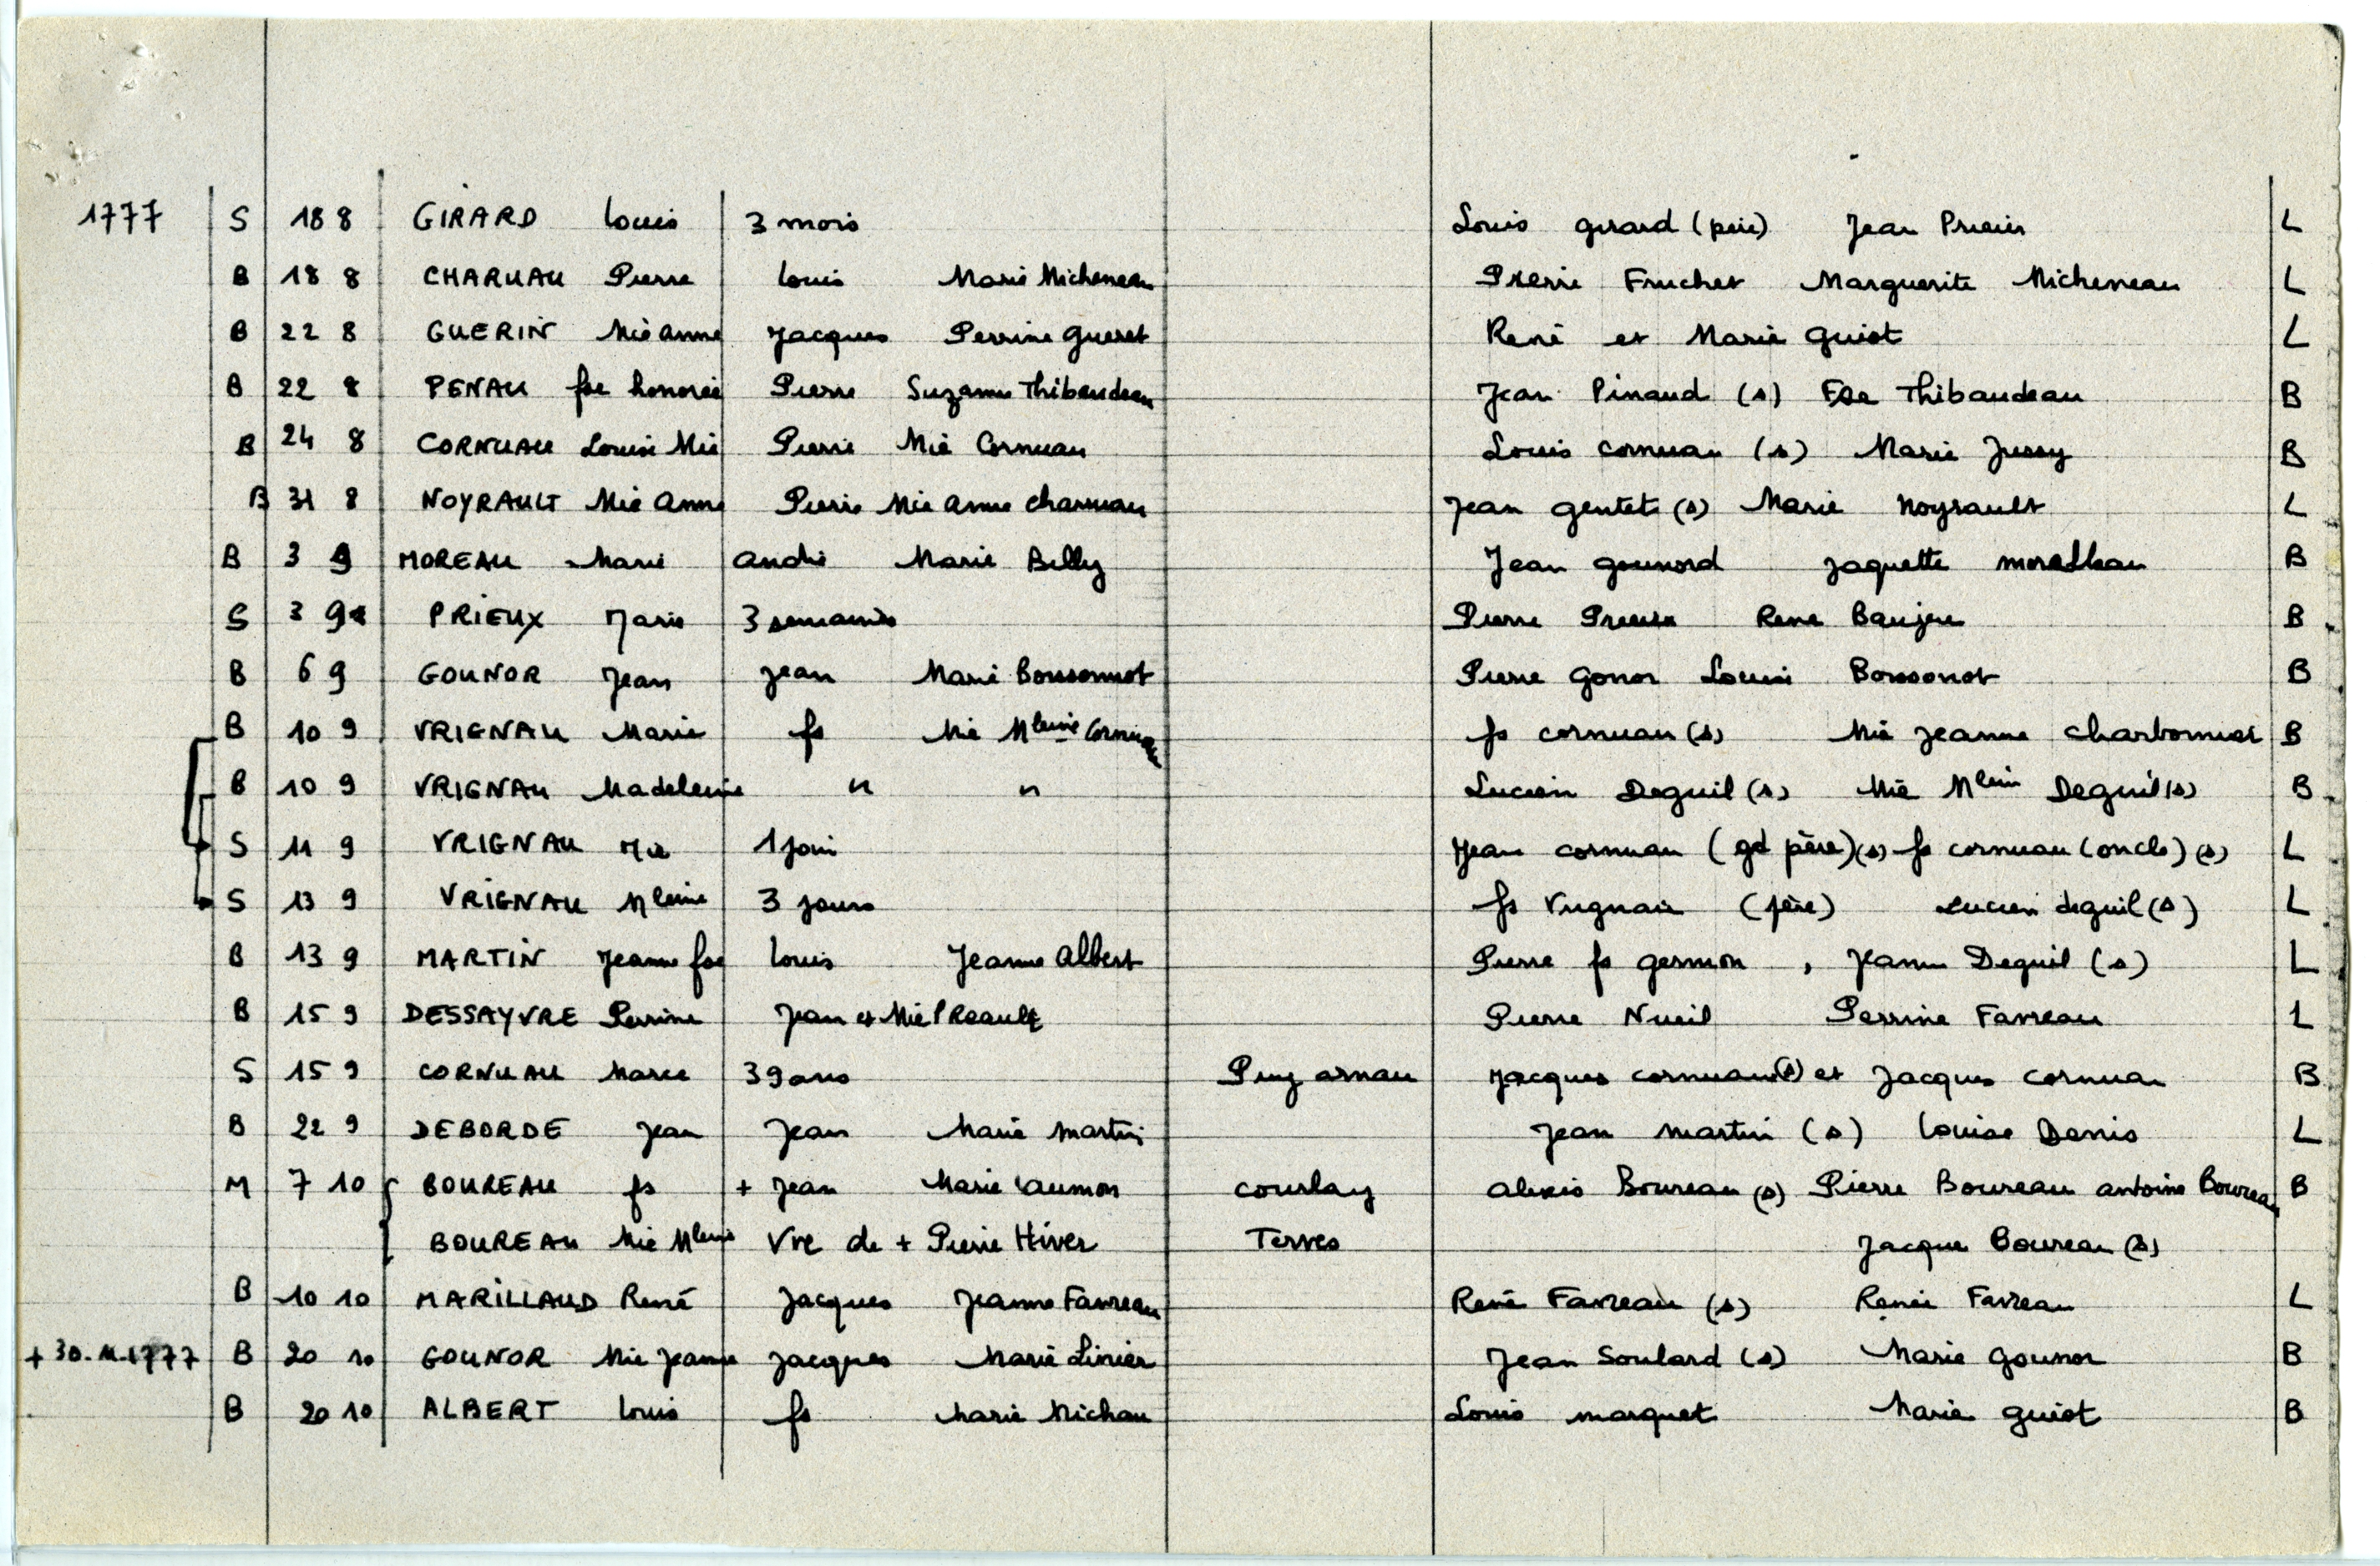 1777 S 18 8 GIRARD Louis 3 mois Louis girard (père) Jean Prieur L
B 18 8 CHARUAU Pierre Louis Marie Micheneau Pierre Fruchet Marguerite Micheneau L
B 22 8 GUERIN Mie Anne Jacques Perrine Gueret René et Marie Guiot L
B 22 8 PENAU fse honorée Pierre Suzanne Thibaudeau Jean Pinaud (s) Fse Thibaudeau B
B 24 8 CORNUAU Louise Mie Pierre Mie Cornuau Louis cornuau (s) Marie Jussy B
B 31 8 NOYRAULT Mie Anne Pierre Mie Anne Charuau Jean gentet (s) Marie Noyrault L
B 3 9 MOREAU Marie andré Marie Billy Jean gounord Jaquette
S 3 9 PRIEUX Marie 3 semaines Pierre Prieux René B
B 6 9 GOUNOR Jean Jean Marie Boussonnot Pierre gonor Louise Boussonot B
B 10 9 VRIGNAU Marie fs Mie Mleine Cornuau fs cornuau (s) Mie Jeanne Charbonnier B
B 10 9 VRIGNAU Madeleine " " Lucien Deguil (s) Mie Mleine Deguil (s) B
S 11 9 VRIGNAU Mie 1 jour Jean cornuau (gd père) (s) fs cornuau (oncle) (s) L
S 13 9 VRIGNAU Mleine 3 jours fs Vrignau (père) Lucien deguil (s) L
B 13 9 MARTIN Jeanne fse Louis Jeanne Albert Pierre fs germon , Jeanne Deguil (s) L
B 15 9 DESSAYVRE Perrine Jean et Mie PREault Pierre Nueil Perrine Favreau L
S 15 9 CORNUAU Marie 39 ans Puy arnau Jacques cornuau (s) et Jacques cornuau B
B 22 9 DEBORDE Jean Jean Marie Martin Jean martin (s) Louise Denis L
M 7 10 BOUREAU fs + Jean Marie Laumon courlay alexis Boureau (s) Pierre Boureau antoine Boureau B
BOUREAU Mie Mleine Vve de + Pierre Hiver Terves Jacques Boureau (s)
B 10 10 MARILLAUD René Jacques Jeanne Favreau René Favreau (s) Renée Favreau L
+ 30.11.1777 B 20 10 GOUNOR Mie Jeanne Jacques Marie Linier Jean Soulard (s) Marie gounor B
B 20 10 ALBERT Louis fs Marie Michau Louis marquet Marie guiot B